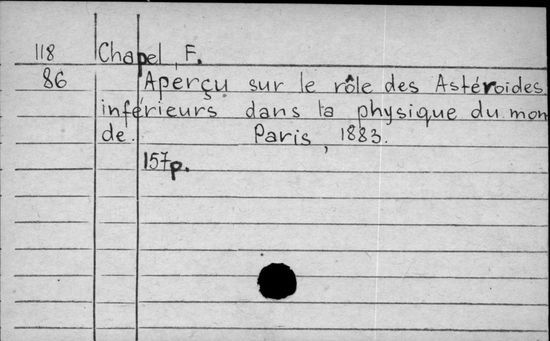 118 Chapel, F.
86 Aperçu sur le rôle des Astéroides
inférieurs dans la physique du mon
de. Paris, 1883.
157p.